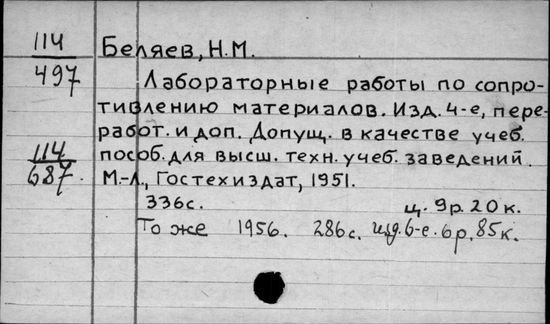 114
497
Беляев, Н.М.
Лабораторные работы по сопро-
тивлению материалов. Изд. 4-е, пере-
работ. и доп. Допущ. в качестве учеб.
114
687.
пособ. для высш. техн. учеб. заведений.
М.-Л., Гостехиздат, 1951.
336с. ц. 9р. 20к.
То же 1956. 286с. изд. 6-е. 6р. 85к.